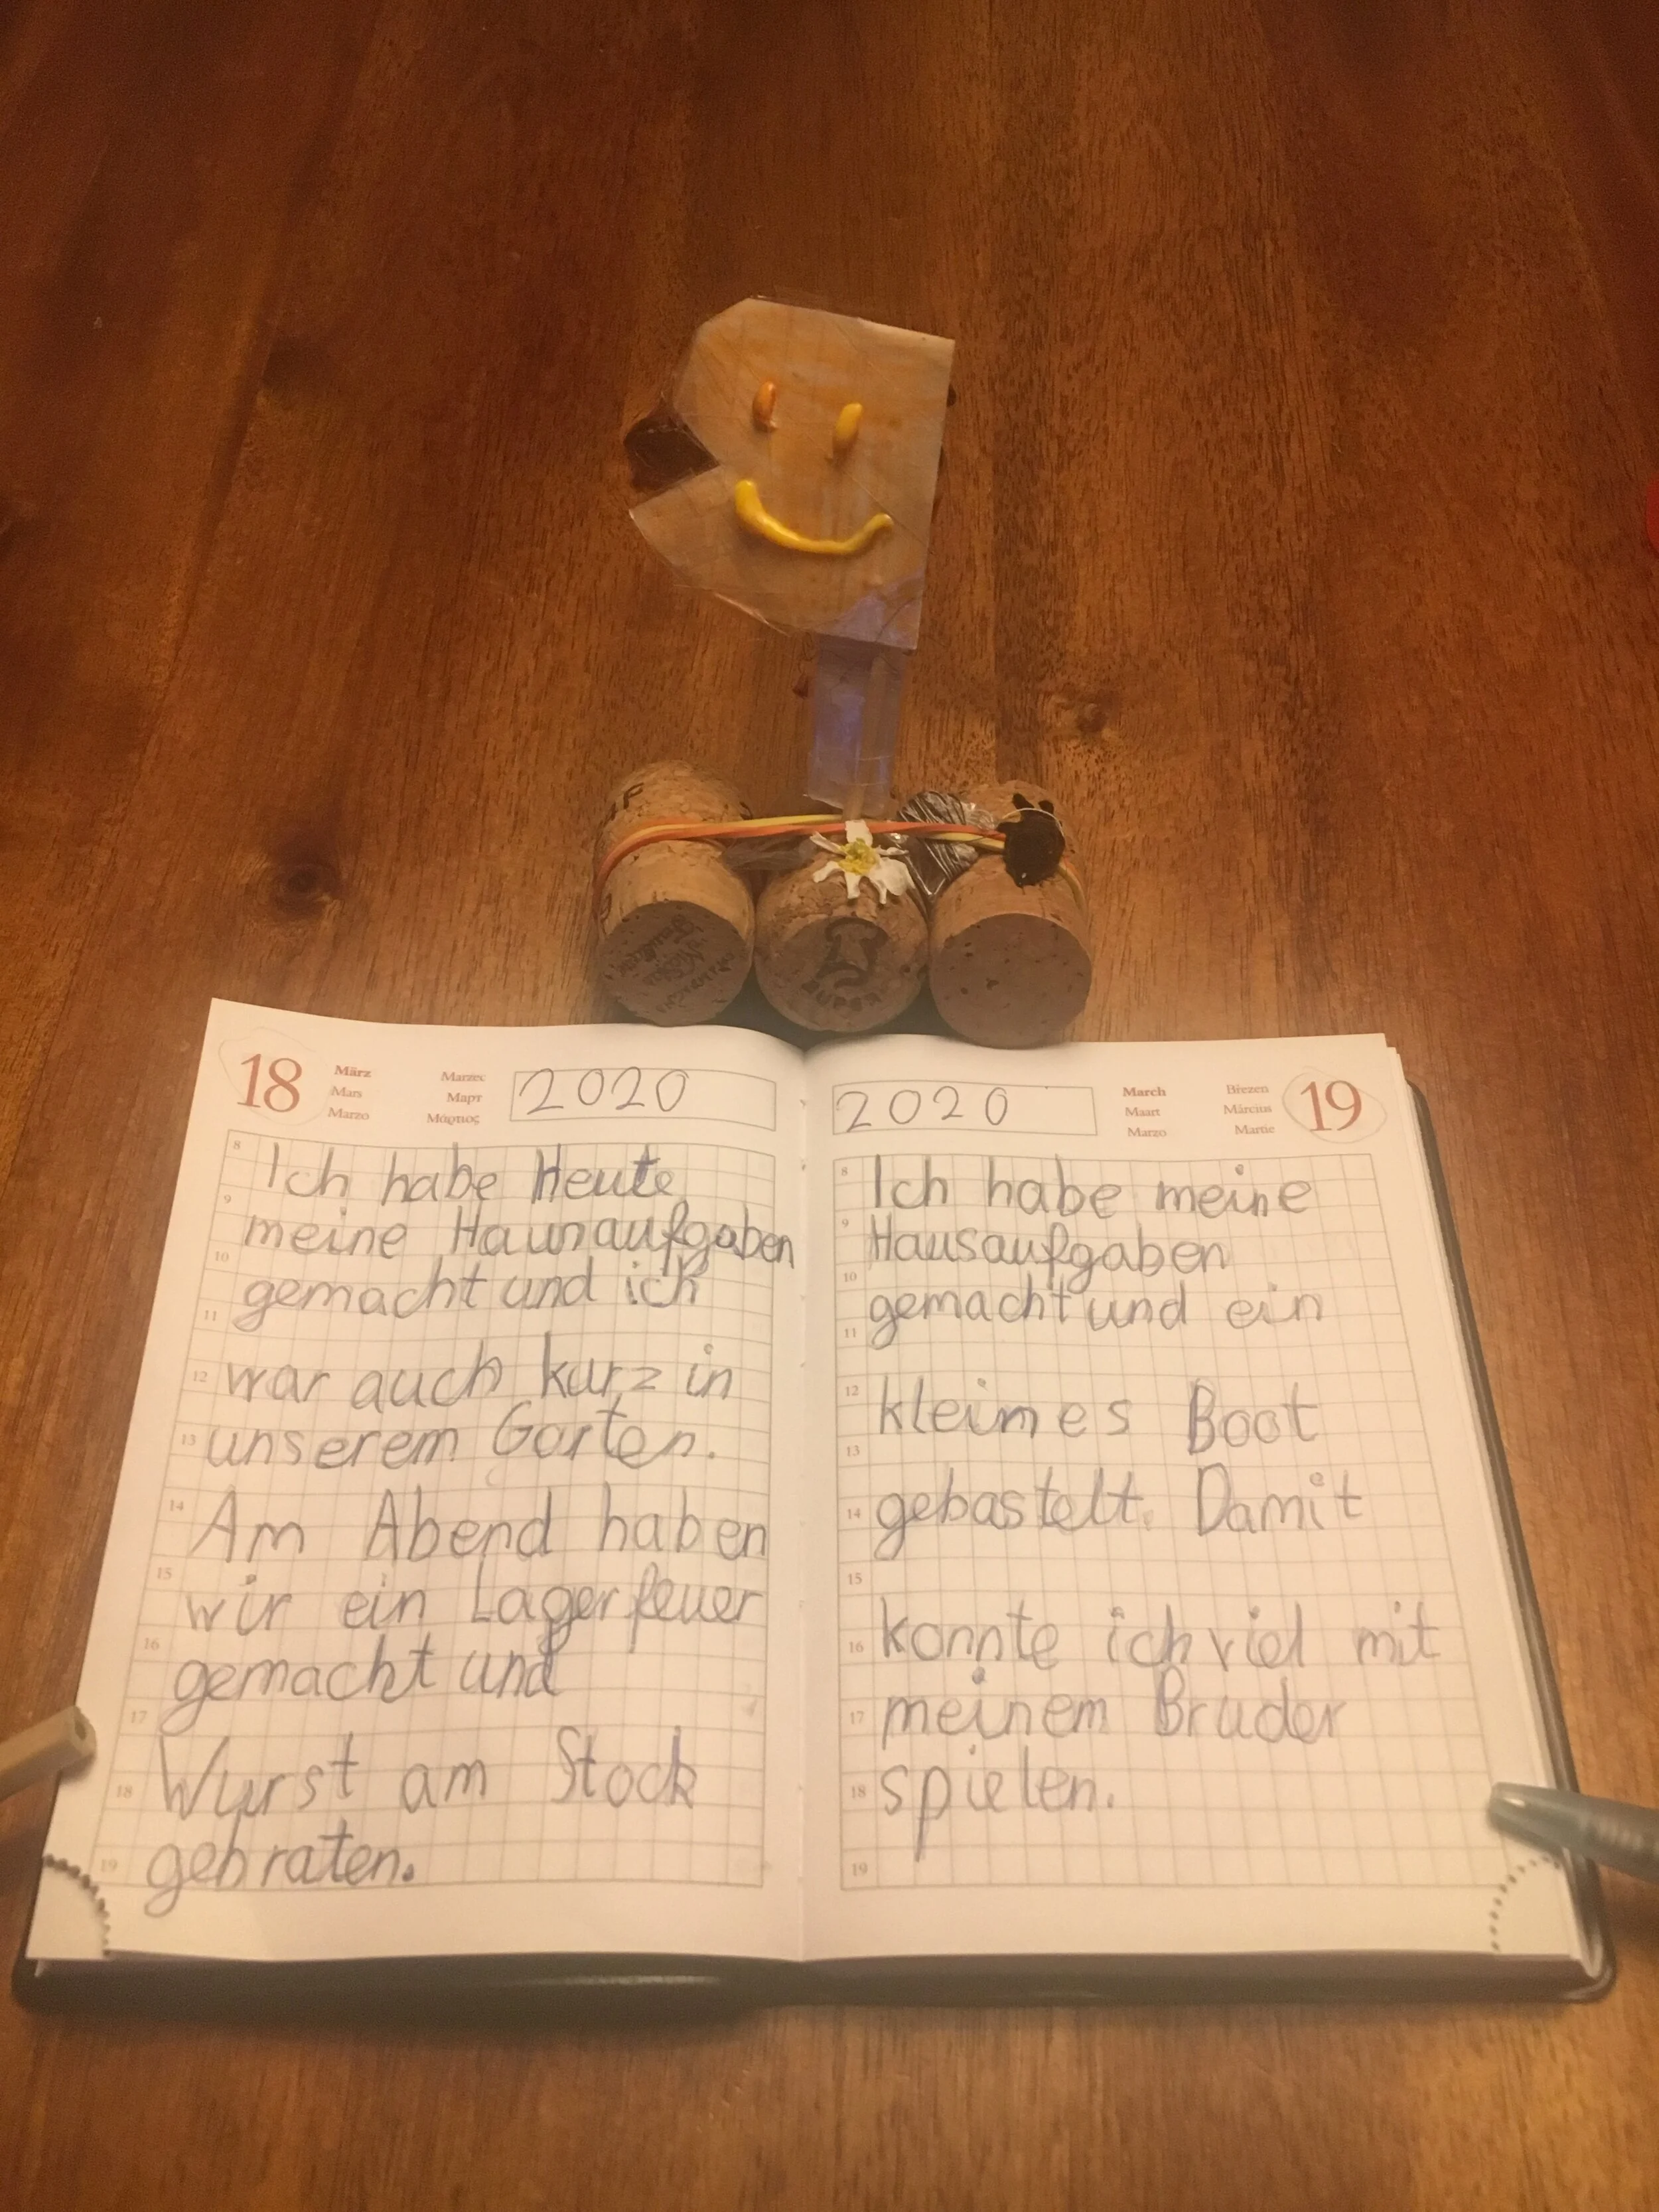 18
März
Mars
Marzo
Marzec
Март
Μάρτιος
2020
8
9
10
11
12
13
14
15
16
17
18
19
Ich habe Heute
meine Hausaufgaben
gemacht und ich
war auch kurz in
unserem Garten.
Am Abend haben
wir ein Lagerfeuer
gemacht und
Wurst am Stock
gebraten.
2020
March
Maart
Marzo
Březen
Március
Martie
19
8
9
10
11
12
13
14
15
16
17
18
19
Ich habe meine
Hausaufgaben
gemacht und ein
kleines Boot
gebastelt. Damit
konnte ich viel mit
meinem Bruder
spielen.